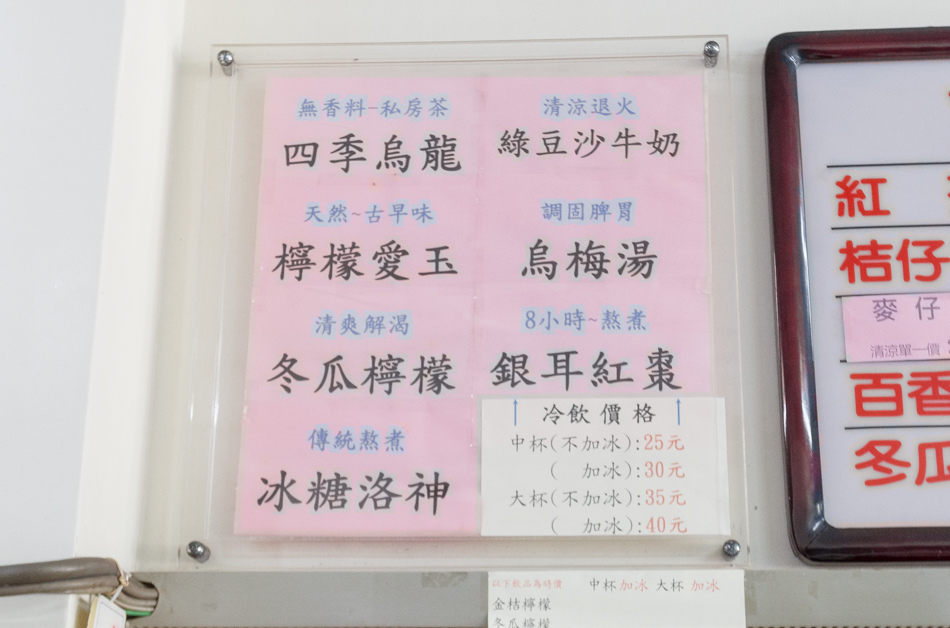 無香料-私房茶
四季烏龍
天然~古早味
檸檬愛玉
清爽解渴
冬瓜檸檬
傳統熬煮
冰糖洛神
清涼退火
綠豆沙牛奶
調固脾胃
烏梅湯
8小時~熬煮
銀耳紅棗
↑ 冷飲價格 ↑
中杯(不加冰):25元
( 加冰):30元
大杯(不加冰):35元
( 加冰):40元
以下飲品為時價 中杯加冰 大杯 加冰
金桔檸檬
冬瓜檸檬
紅
桔仔
麥仔
清涼單一價
百香
冬瓜